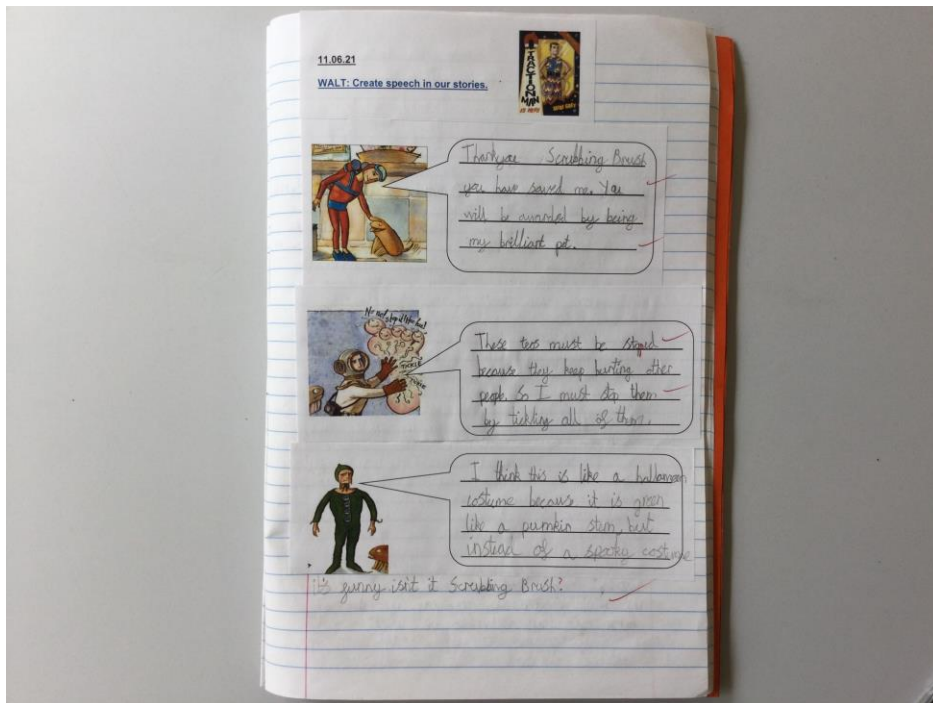 11.06.21
WALT: Create speech in our stories.
TRACTION
MAN
IS HERE
MINI GREY
Thankyou Scrubbing Brush
you have saved me. You
will be awarded by being
my brilliant pet.
No no! stop it
TICKLE
TICKLE
These toes must be stoped
because they keep hurting other
people. So I must stop them
by tickling all of them.
I think this is like a halloween
costume because it is green
like a pumkin stem, but
instead of a spooky costume
it's funny isn't it Scrubbing Brush?